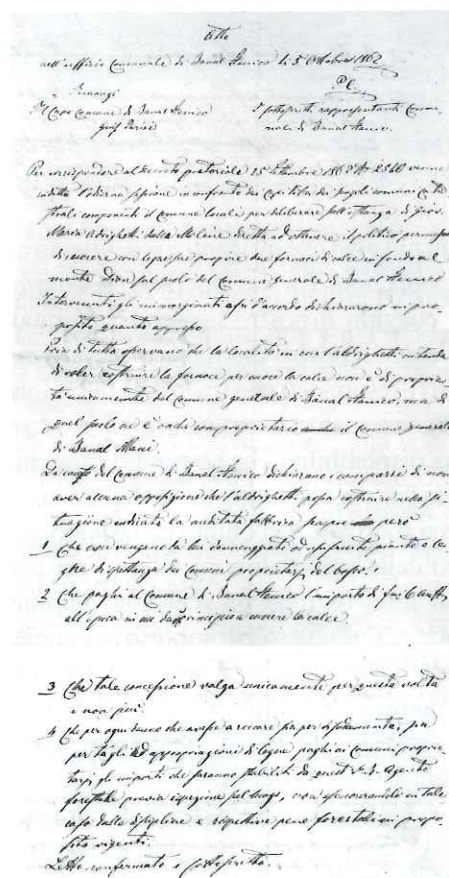 Atto
nell'uffizio Comunale di Banal Stenico li 5 Ottobre 1862
Innanzi
Il Capo Comune di Banal Stenico
P.C.
I sottoscritti rappresentanti Comu-
nale di Banal Stenico.
Per corrispondere al decreto pretoriale 25 Settembre 1862 N° 2540 venne
indetta l'odierna sessione in confronto dei Capi villa dei singoli comuni ca-
strali componenti il Comune locale per deliberare sull'istanza di Giov.
Maria Aldrighetti dalle diretta ad ottenere il politico permesso
di cuocere con legna proprie due fornaci di calce in fondo al
monte sul suolo del Comune generale di Banal Stenico
Intervenuti gli incaricati d'accordo dichiararono in pro-
posito quanto appresso.
Prima di tutto osservano che la località in cui l'Aldrighetti intende
di voler costruire la fornace per cuocer la calce non è di proprie-
tà unicamente del Comune generale di Banal Stenico, ma di
quel suolo ne è anche comproprietario il Comune generale
di Banal
del Comune di Banal Stenico dichiarano i comparsi di non
aver alcuna opposizione che l'Aldrighetti possa costruire nella si-
tuazione indicata la fornace però
1 Che non vengano da lui danneggiate piante e le-
gne di spettanza dei Comuni proprietari del bosco.
2 Che paghi al Comune di Banal Stenico l'importo di fni 6
all'epoca in cui principia a cuocere la calce.
3 Che tale concessione valga unicamente per questa volta
e non più.
4 Che per ogni danno che avesse a recare sia per, sia
per tagli ed appropriazioni di legne paghi ai Comuni proprie-
tari gli importi che saranno stabiliti da quest' Agente
forestale previa ispezione sul luogo, non esonerandolo in tale
caso dalle discipline e rispettive pene forestali in propo-
sito vigenti.
Letto confermato e sottoscritto.